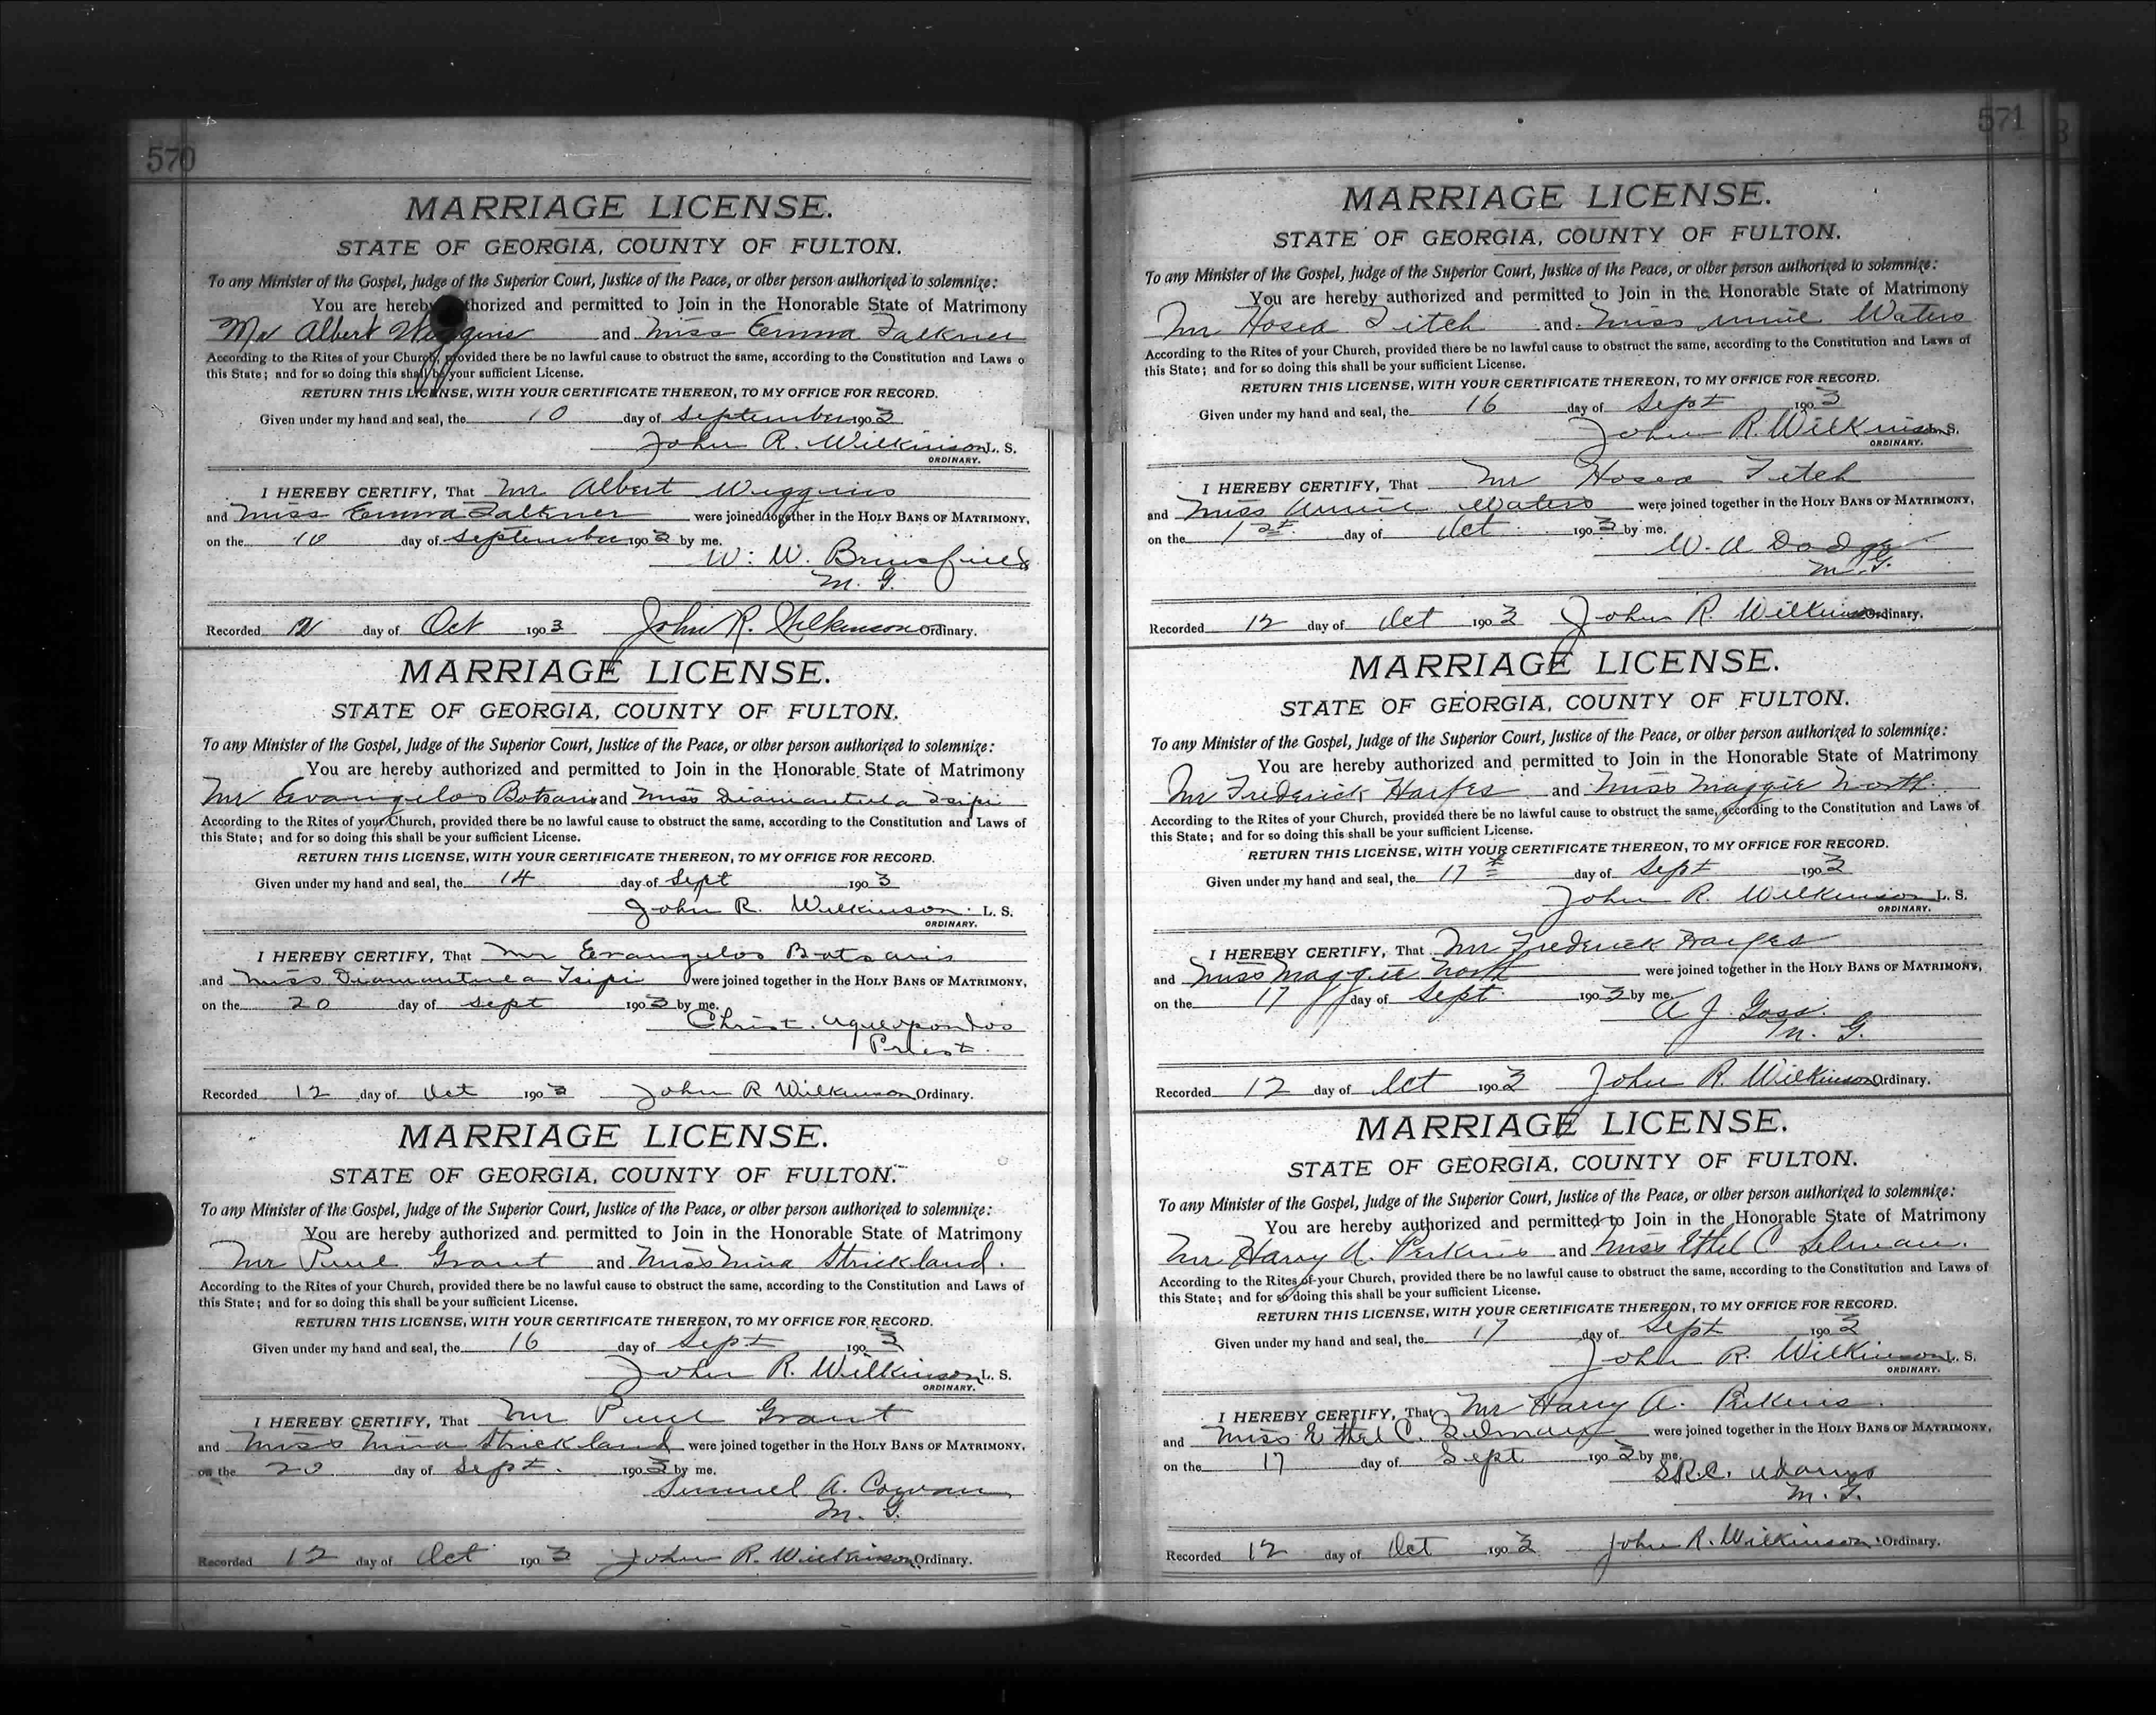 570
MARRIAGE LICENSE.
STATE OF GEORGIA, COUNTY OF FULTON.
To any Minister of the Gospel, Judge of the Superior Court, Justice of the Peace, or other person authorized to solemnize:
You are hereby thorized and permitted to Join in the Honorable State of Matrimony
Mr Albert Wiggins and Miss Emma Falkner
According to the Rites of your Church, provided there be no lawful cause to obstruct the same, according to the Constitution and Laws o
this State; and for so doing this shall be your sufficient License.
RETURN THIS LICENSE, WITH YOUR CERTIFICATE THEREON, TO MY OFFICE FOR RECORD.
Given under my hand and seal, the 10 day of September 1903
John R. Wilkinson L. S.
ORDINARY.
I HEREBY CERTIFY, That Mr Albert Wiggins
and Miss Emma Falkner were joined together in the HOLY BANS OF MATRIMONY,
on the 10 day of September 1903 by me.
W. W. Brinsfield
M. G.
Recorded 12 day of Oct 1903 John R. Wilkinson Ordinary.
MARRIAGE LICENSE.
STATE OF GEORGIA, COUNTY OF FULTON.
To any Minister of the Gospel, Judge of the Superior Court, Justice of the Peace, or other person authorized to solemnize:
You are hereby authorized and permitted to Join in the Honorable State of Matrimony
Mr Evangelos Botsaris and Miss Diamantula Tsipi
According to the Rites of your Church, provided there be no lawful cause to obstruct the same, according to the Constitution and Laws of
this State; and for so doing this shall be your sufficient License.
RETURN THIS LICENSE, WITH YOUR CERTIFICATE THEREON, TO MY OFFICE FOR RECORD.
Given under my hand and seal, the 14 day of Sept 1903
John R. Wilkinson L. S.
ORDINARY.
I HEREBY CERTIFY, That Mr Evangelos Botsaris
and Miss Diamantula Tsipi were joined together in the HOLY BANS OF MATRIMONY,
on the 20 day of Sept 1903 by me.
Christ.
Priest.
Recorded 12 day of Oct 1903 John R Wilkinson Ordinary.
MARRIAGE LICENSE.
STATE OF GEORGIA, COUNTY OF FULTON.
To any Minister of the Gospel, Judge of the Superior Court, Justice of the Peace, or other person authorized to solemnize:
You are hereby authorized and permitted to Join in the Honorable State of Matrimony
Mr Paul Grant and Miss Nina Strickland.
According to the Rites of your Church, provided there be no lawful cause to obstruct the same, according to the Constitution and Laws of
this State; and for so doing this shall be your sufficient License.
RETURN THIS LICENSE, WITH YOUR CERTIFICATE THEREON, TO MY OFFICE FOR RECORD.
Given under my hand and seal, the 16 day of Sept 1903
John R. Wilkinson L. S.
ORDINARY.
I HEREBY CERTIFY, That Mr Paul Grant
and Miss Nina Strickland were joined together in the HOLY BANS OF MATRIMONY,
on the 20 day of Sept. 1903 by me.
Samuel A. Cowan
M. G.
Recorded 12 day of Oct 1903 John R. Wilkinson Ordinary.
571
MARRIAGE LICENSE.
STATE OF GEORGIA, COUNTY OF FULTON.
To any Minister of the Gospel, Judge of the Superior Court, Justice of the Peace, or other person authorized to solemnize:
You are hereby authorized and permitted to Join in the Honorable State of Matrimony
Mr Hosea Fitch and Miss Annie Waters
According to the Rites of your Church, provided there be no lawful cause to obstruct the same, according to the Constitution and Laws of
this State; and for so doing this shall be your sufficient License.
RETURN THIS LICENSE, WITH YOUR CERTIFICATE THEREON, TO MY OFFICE FOR RECORD.
Given under my hand and seal, the 16 day of Sept 1903
John R. Wilkinson L. S.
ORDINARY.
I HEREBY CERTIFY, That Mr Hosea Fitch
and Miss Annie Waters were joined together in the HOLY BANS OF MATRIMONY,
on the 1st. day of Oct. 1903 by me.
W. A Dodge
M. G.
Recorded 12 day of Oct 1903 John R. Wilkinson Ordinary.
MARRIAGE LICENSE.
STATE OF GEORGIA, COUNTY OF FULTON.
To any Minister of the Gospel, Judge of the Superior Court, Justice of the Peace, or other person authorized to solemnize:
You are hereby authorized and permitted to Join in the Honorable State of Matrimony
Mr Frederick Harfes and Miss Maggie North.
According to the Rites of your Church, provided there be no lawful cause to obstruct the same, according to the Constitution and Laws of
this State; and for so doing this shall be your sufficient License.
RETURN THIS LICENSE, WITH YOUR CERTIFICATE THEREON, TO MY OFFICE FOR RECORD.
Given under my hand and seal, the 17th day of Sept 1903
John R. Wilkinson L. S.
ORDINARY.
I HEREBY CERTIFY, That Mr Frederick Harfes
and Miss Maggie North were joined together in the HOLY BANS OF MATRIMONY,
on the 17 day of Sept. 1903 by me.
A J. Goss.
M. G.
Recorded 12 day of Oct 1903 John R. Wilkinson Ordinary.
MARRIAGE LICENSE.
STATE OF GEORGIA, COUNTY OF FULTON.
To any Minister of the Gospel, Judge of the Superior Court, Justice of the Peace, or other person authorized to solemnize:
You are hereby authorized and permitted to Join in the Honorable State of Matrimony
Mr Harry A. Perkins and Miss Ethel C Selman.
According to the Rites of your Church, provided there be no lawful cause to obstruct the same, according to the Constitution and Laws of
this State; and for so doing this shall be your sufficient License.
RETURN THIS LICENSE, WITH YOUR CERTIFICATE THEREON, TO MY OFFICE FOR RECORD.
Given under my hand and seal, the 17 day of Sept 1903
John R. Wilkinson L. S.
ORDINARY.
I HEREBY CERTIFY, That Mr Harry A. Perkins.
and Miss Ethel C. Selman were joined together in the HOLY BANS OF MATRIMONY,
on the 17 day of Sept 1903 by me.
S.R.C. Adams
M. G.
Recorded 12 day of Oct 1903 John R. Wilkinson Ordinary.